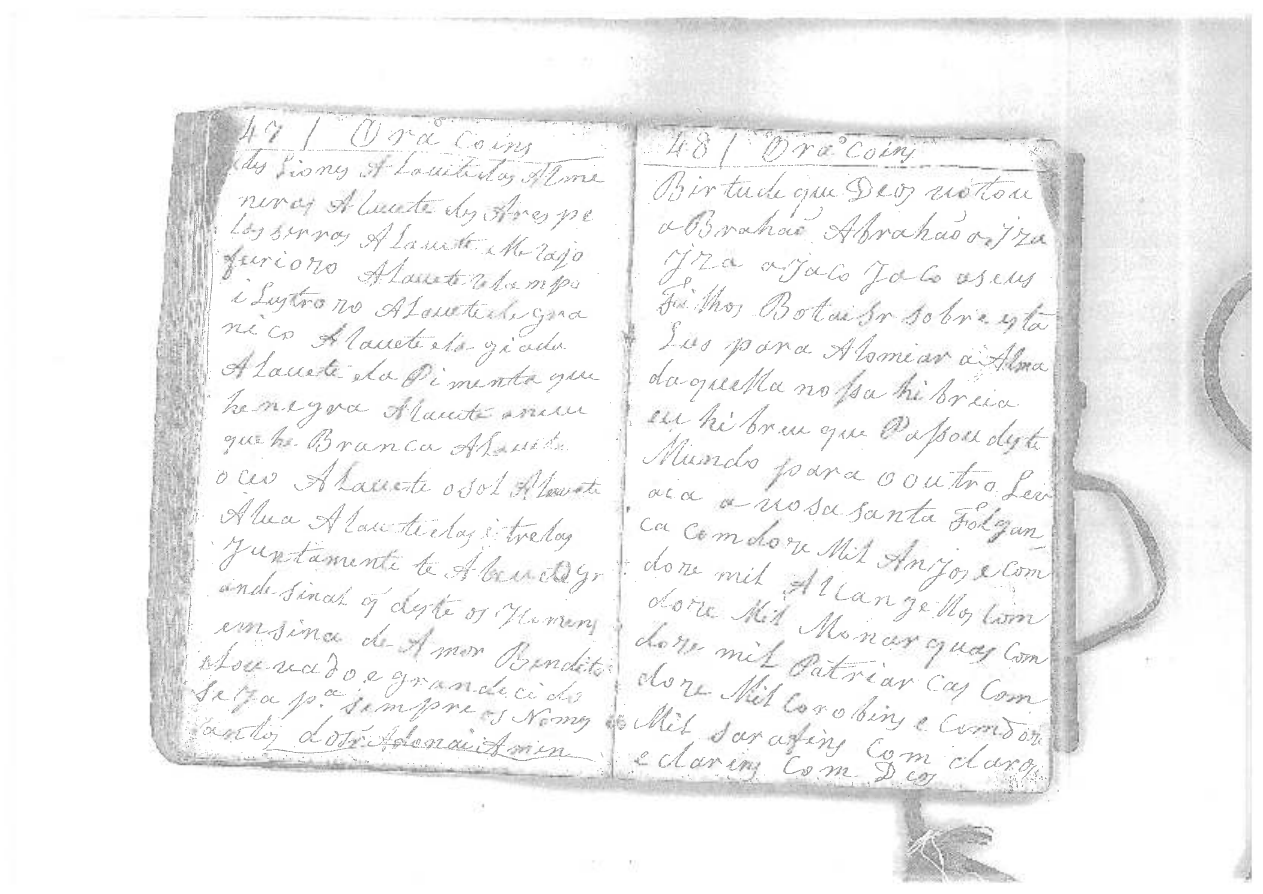 47 | Oracoins
dos Liones A Lauete dos Alme
neros A lauete dos Ares pe
Los serros A Lauete o Mr rajo
furiozo A lauete relampo
i Lustrozo A Lauete de gra
nico A lauete ela giada
A Lauete ela Pimenta que
he negra A lauete aneue
que he Branca A Lauete
o ceo A Lauete o sol A lauete
A lua A lauete las i trelas
Juntamente te A lauete o gr
ande sinal q̃ deste os Homens
em sina de Amor Bendito
e Louuado e grandicido
seja p.ª sempre os Nomes
santos do Sr Adonai Amen
48 | Oracoins
Birtude que Deos uotou
a Brahaõ Abrahaõ a Jza
Jza a Jaco Jaco a seus
Filhos Botai Sr sobre esta
Lus para Alomiar a Alma
da quella nossa hibreia
eu hibreu que Passou deste
Mundo para o outro Lev
aia a uosa santa Folgan
ca com doze Mil Anjos e com
doze mil Allangellos com
doze Mil Monarquas com
doze mil Patriarcas Com
doze Mil Corobins e Com doze
Mil sarafins Com claros
e clarins Com Deos